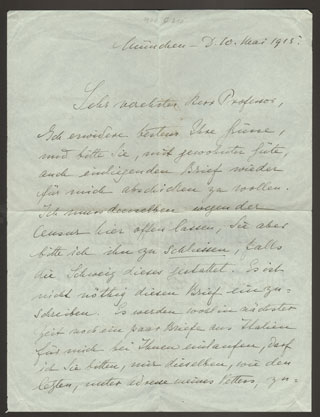 München – D. 10. Mai 1915.
Sehr verehrter Herr Professor,
Ich erwidere bestens Ihre Grüsse,
und bitte Sie, mit gewohnter Güte,
auch einliegenden Brief wieder
für mich abschicken zu wollen.
Ich muss denselben wegen der
Censur hier offen lassen, Sie aber
bitte ich ihn zu schliessen, falls
die Schweiz dieses gestattet. Es ist
nicht nöthig diesen Brief einzu-
schreiben. Es werden wohl in nächster
Zeit noch ein paar Briefe aus Italien
für mich bei Ihnen einlaufen, darf
ich Sie bitten, mir dieselben, wie den
letzten, unter Adresse meines Vetters, zu-